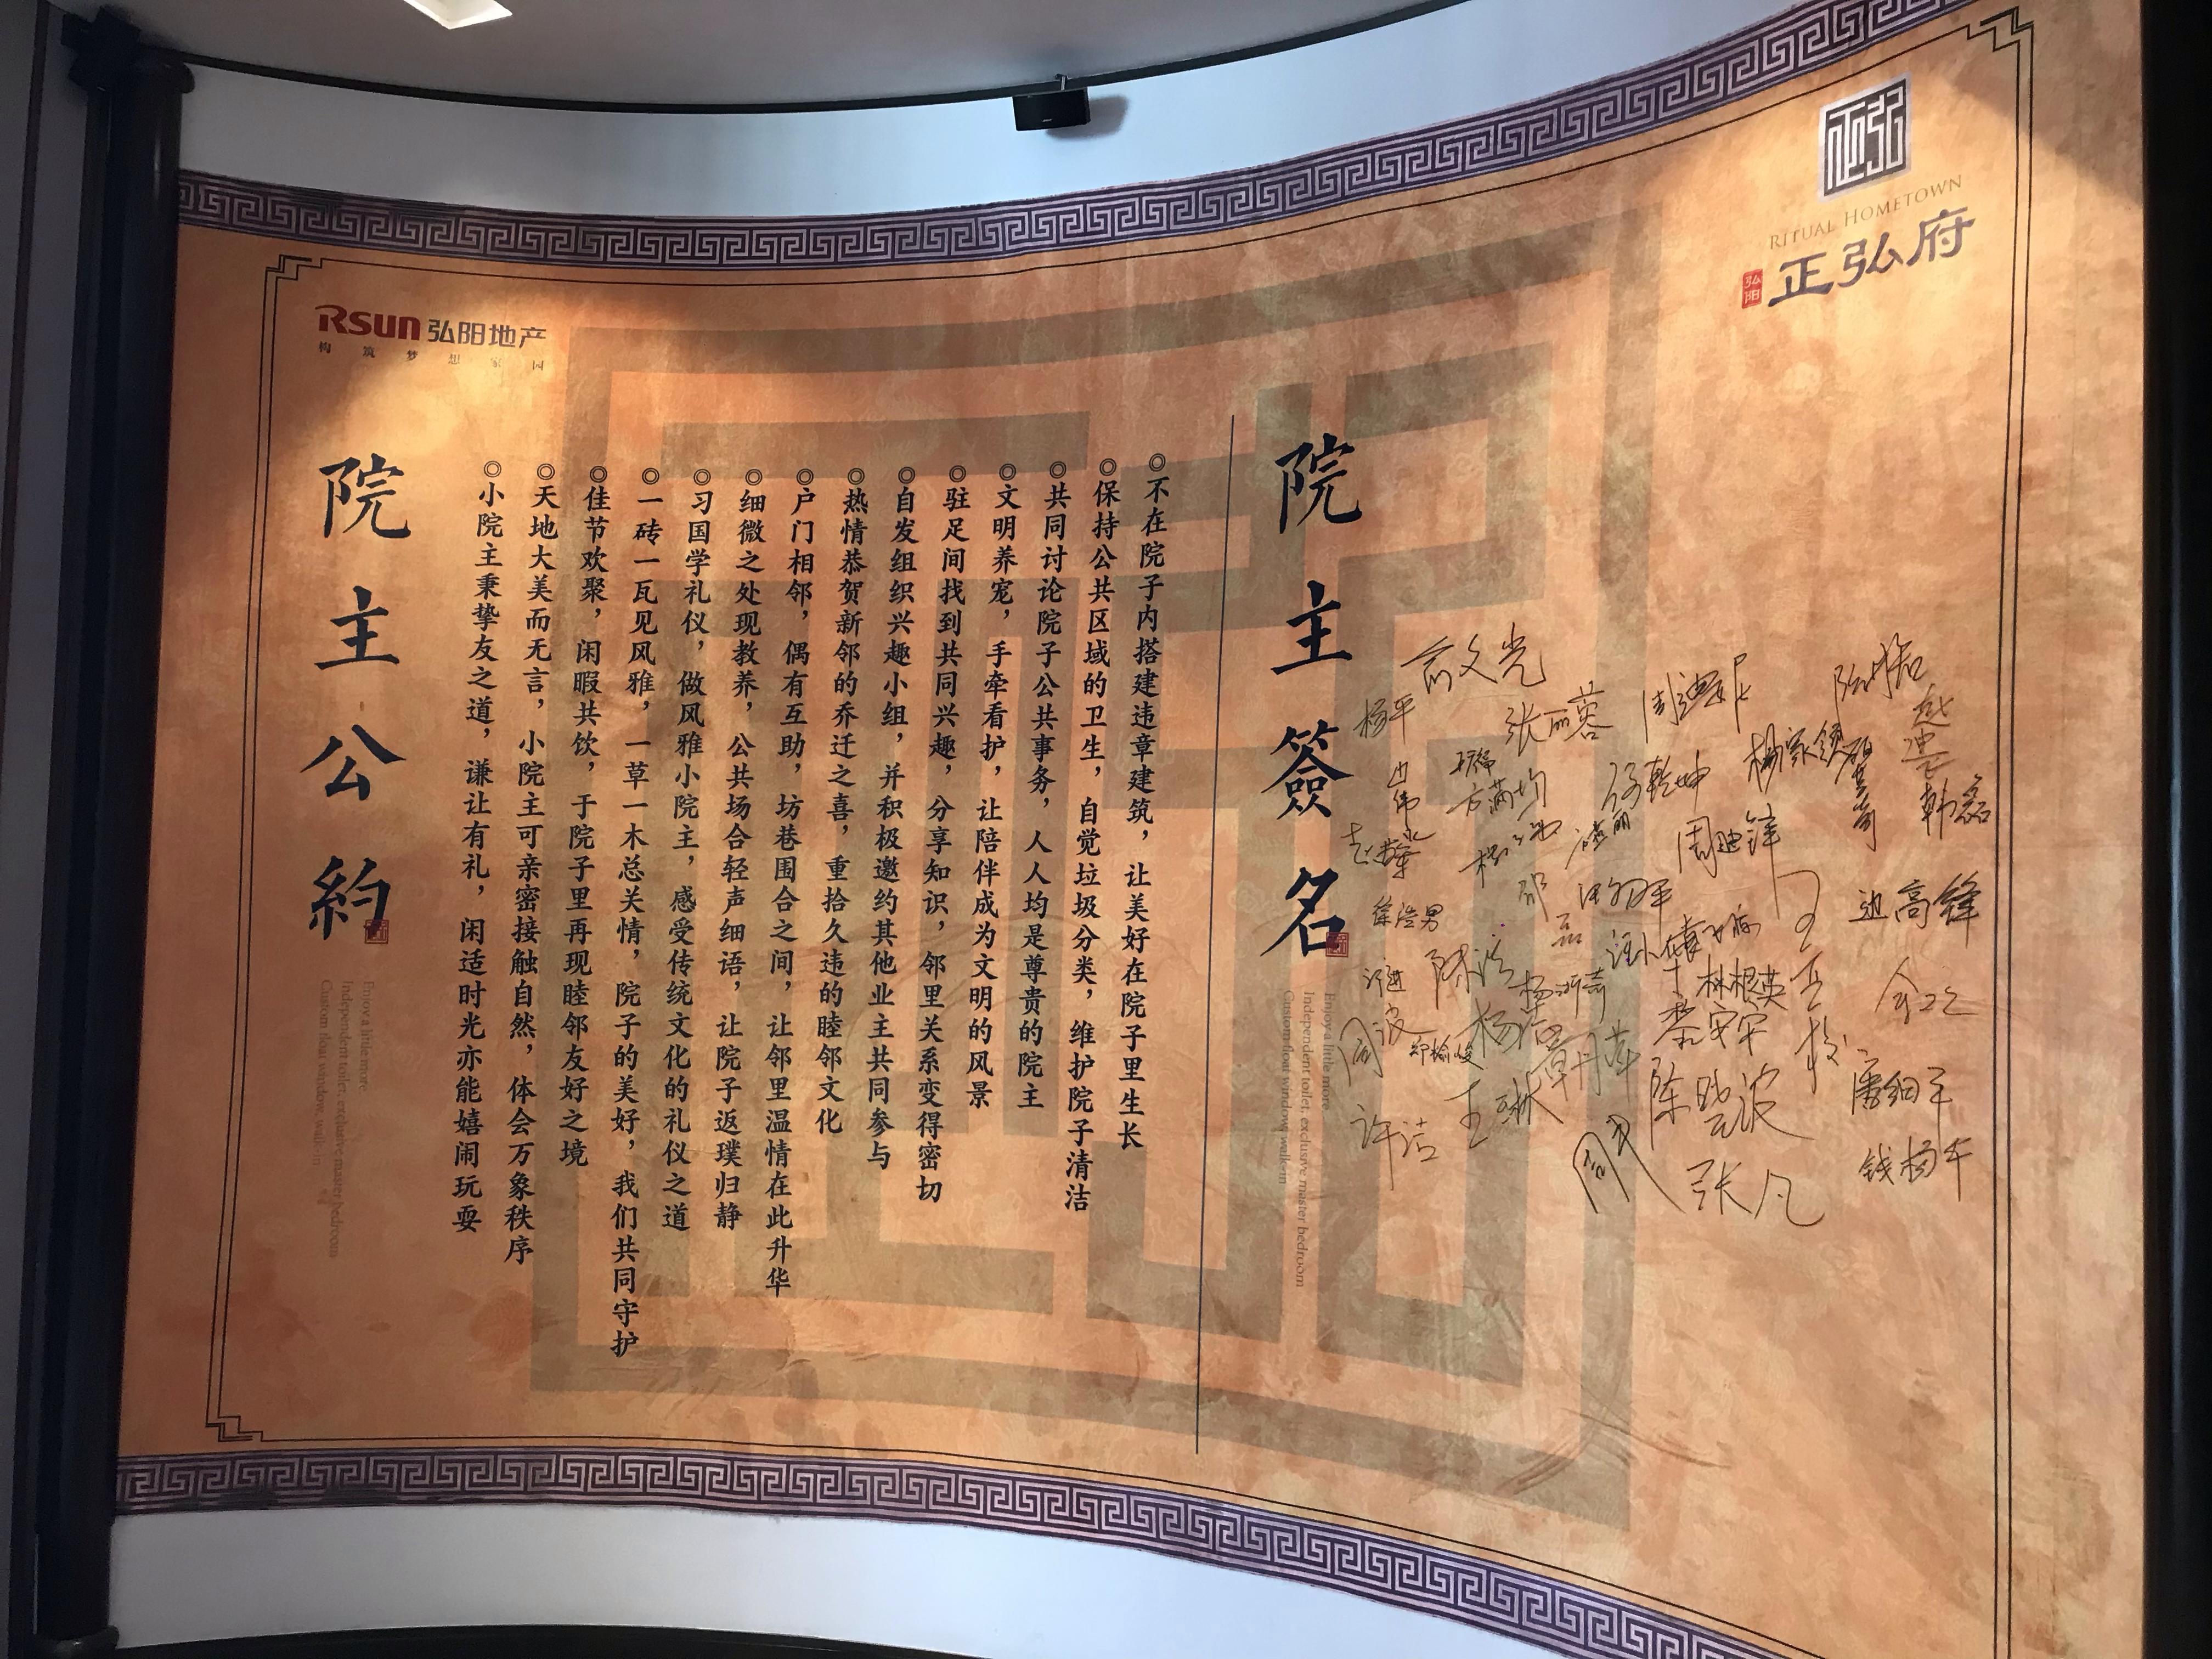 Rsun 弘阳地产
构筑梦想家园
院主公約
Enjoy a little more
Independent toilet, exclusive master bedroom
Custom float window, walk-in
◎小院主秉挚友之道，谦让有礼，闲适时光亦能嬉闹玩耍
◎天地大美而无言，小院主可亲密接触自然，体会万象秩序
◎佳节欢聚，闲暇共饮，于院子里再现睦邻友好之境
◎一砖一瓦见风雅，一草一木总关情，院子的美好，我们共同守护
◎习国学礼仪，做风雅小院主，感受传统文化的礼仪之道
◎细微之处现教养，公共场合轻声细语，让院子返璞归静
◎户门相邻，偶有互助，坊巷围合之间，让邻里温情在此升华
◎热情恭贺新邻的乔迁之喜，重拾久违的睦邻文化
◎自发组织兴趣小组，并积极邀约其他业主共同参与
◎驻足间找到共同兴趣，分享知识，邻里关系变得密切
◎文明养宠，手牵看护，让陪伴成为文明的风景
◎共同讨论院子公共事务，人人均是尊贵的院主
◎保持公共区域的卫生，自觉垃圾分类，维护院子清洁
◎不在院子内搭建违章建筑，让美好在院子里生长
院主簽名
Enjoy a little more
Independent toilet, exclusive master bedroom
Custom float window, walk-in
正弘
RITUAL HOMETOWN
弘阳
正弘府
俞文光
杨平
张丽蓉
杨家镇
韩磊
方满均
徐乾坤
周迪锋
边高锋
徐浩男
陈浩
林根英
黎安军
周波
陈晓波
潘细平
许洁
王琳
张凡
钱杨千